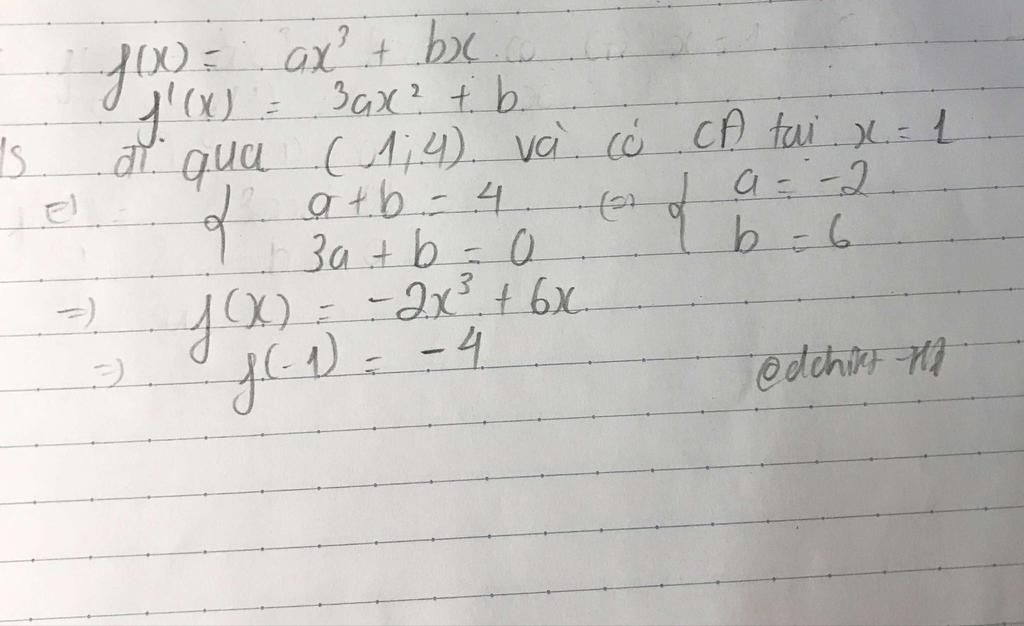 f(x) = ax³ + bx
f'(x) = 3ax² + b
đi qua (1;4) và có CĐ tại x = 1
=> { a + b = 4 <=> { a = -2
3a + b = 0 b = 6
=> f(x) = -2x³ + 6x
=> f(-1) = -4